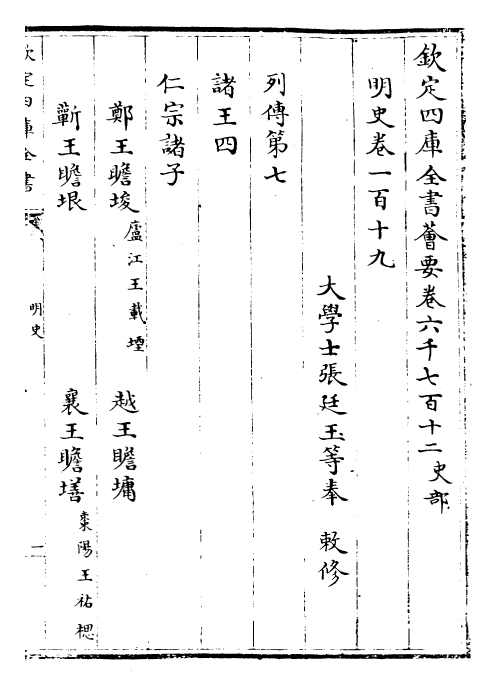 欽定四庫全書薈要卷六千七百十二 史部
明史卷一百十九
大學士張廷玉等奉 敕修
列傳第七
諸王四
仁宗諸子
鄭王瞻埈 廬江王載堙 越王瞻墉
蘄王瞻垠 襄王瞻墡 棗陽王祐楒
欽定四庫全書
明史
一